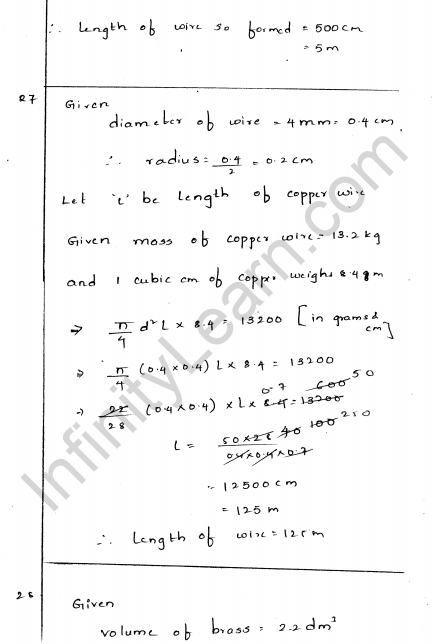 ∴ Length of wire so formed = 500 cm
= 5 m
27 Given
diameter of wire = 4 mm = 0.4 cm
∴ radius = 0.4/2 = 0.2 cm
Let 'l' be length of copper wire
Given mass of copper wire = 13.2 kg
and 1 cubic cm of copper weighs 8.4 gm
⇒ π/4 d² L × 8.4 = 13200 [in grams & cm]
⇒ π/4 (0.4 × 0.4) L × 8.4 = 13200
0.7 600 50
⇒ 22/28 (0.4 × 0.4) × L × 8.4 = 13200
L = 50×28 40 100 250 / 0.4×0.4×0.7
= 12500 cm
= 125 m
∴ Length of wire = 125 m
28 Given
volume of brass = 2.2 dm³
InfinityLearn.com